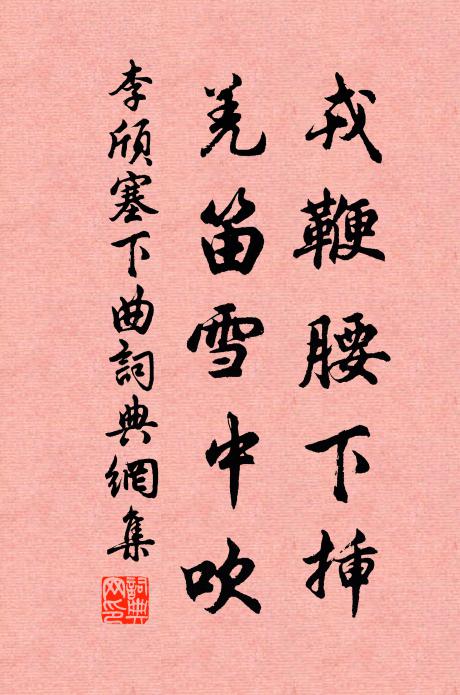 戎鞭腰下插
羌笛雪中吹
李頎塞下曲詞典網集
詞典網印